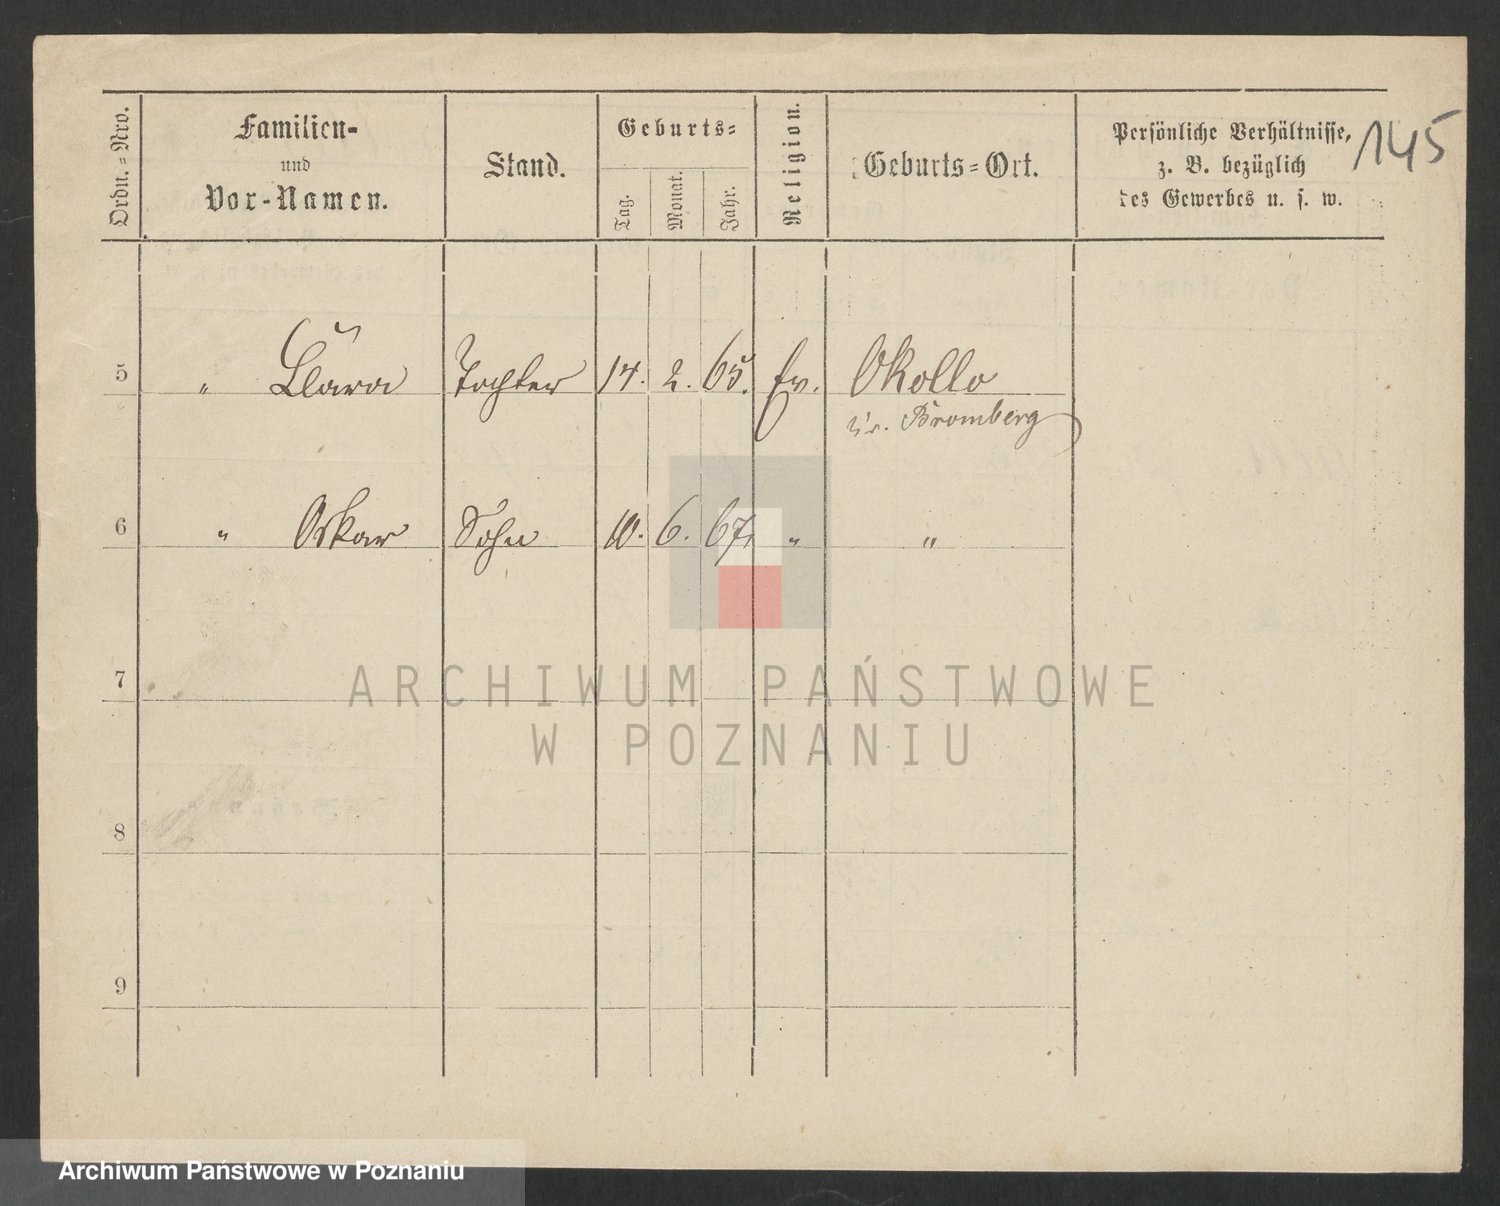 145
Ordn.=Nro.
Familien-
und
Vor-Namen.
Stand.
Geburts=
Tag.
Monat.
Jahr.
Religion.
Geburts=Ort.
Persönliche Verhältnisse,
z. B. bezüglich
des Gewerbes u. s. w.
5 " Clara Tochter 14. 2. 65. Ev. Okollo
Kr. Bromberg
6 " Oskar Sohn 10. 6. 67. " "
7
8
9
ARCHIWUM PAŃSTWOWE
W POZNANIU
Archiwum Państwowe w Poznaniu